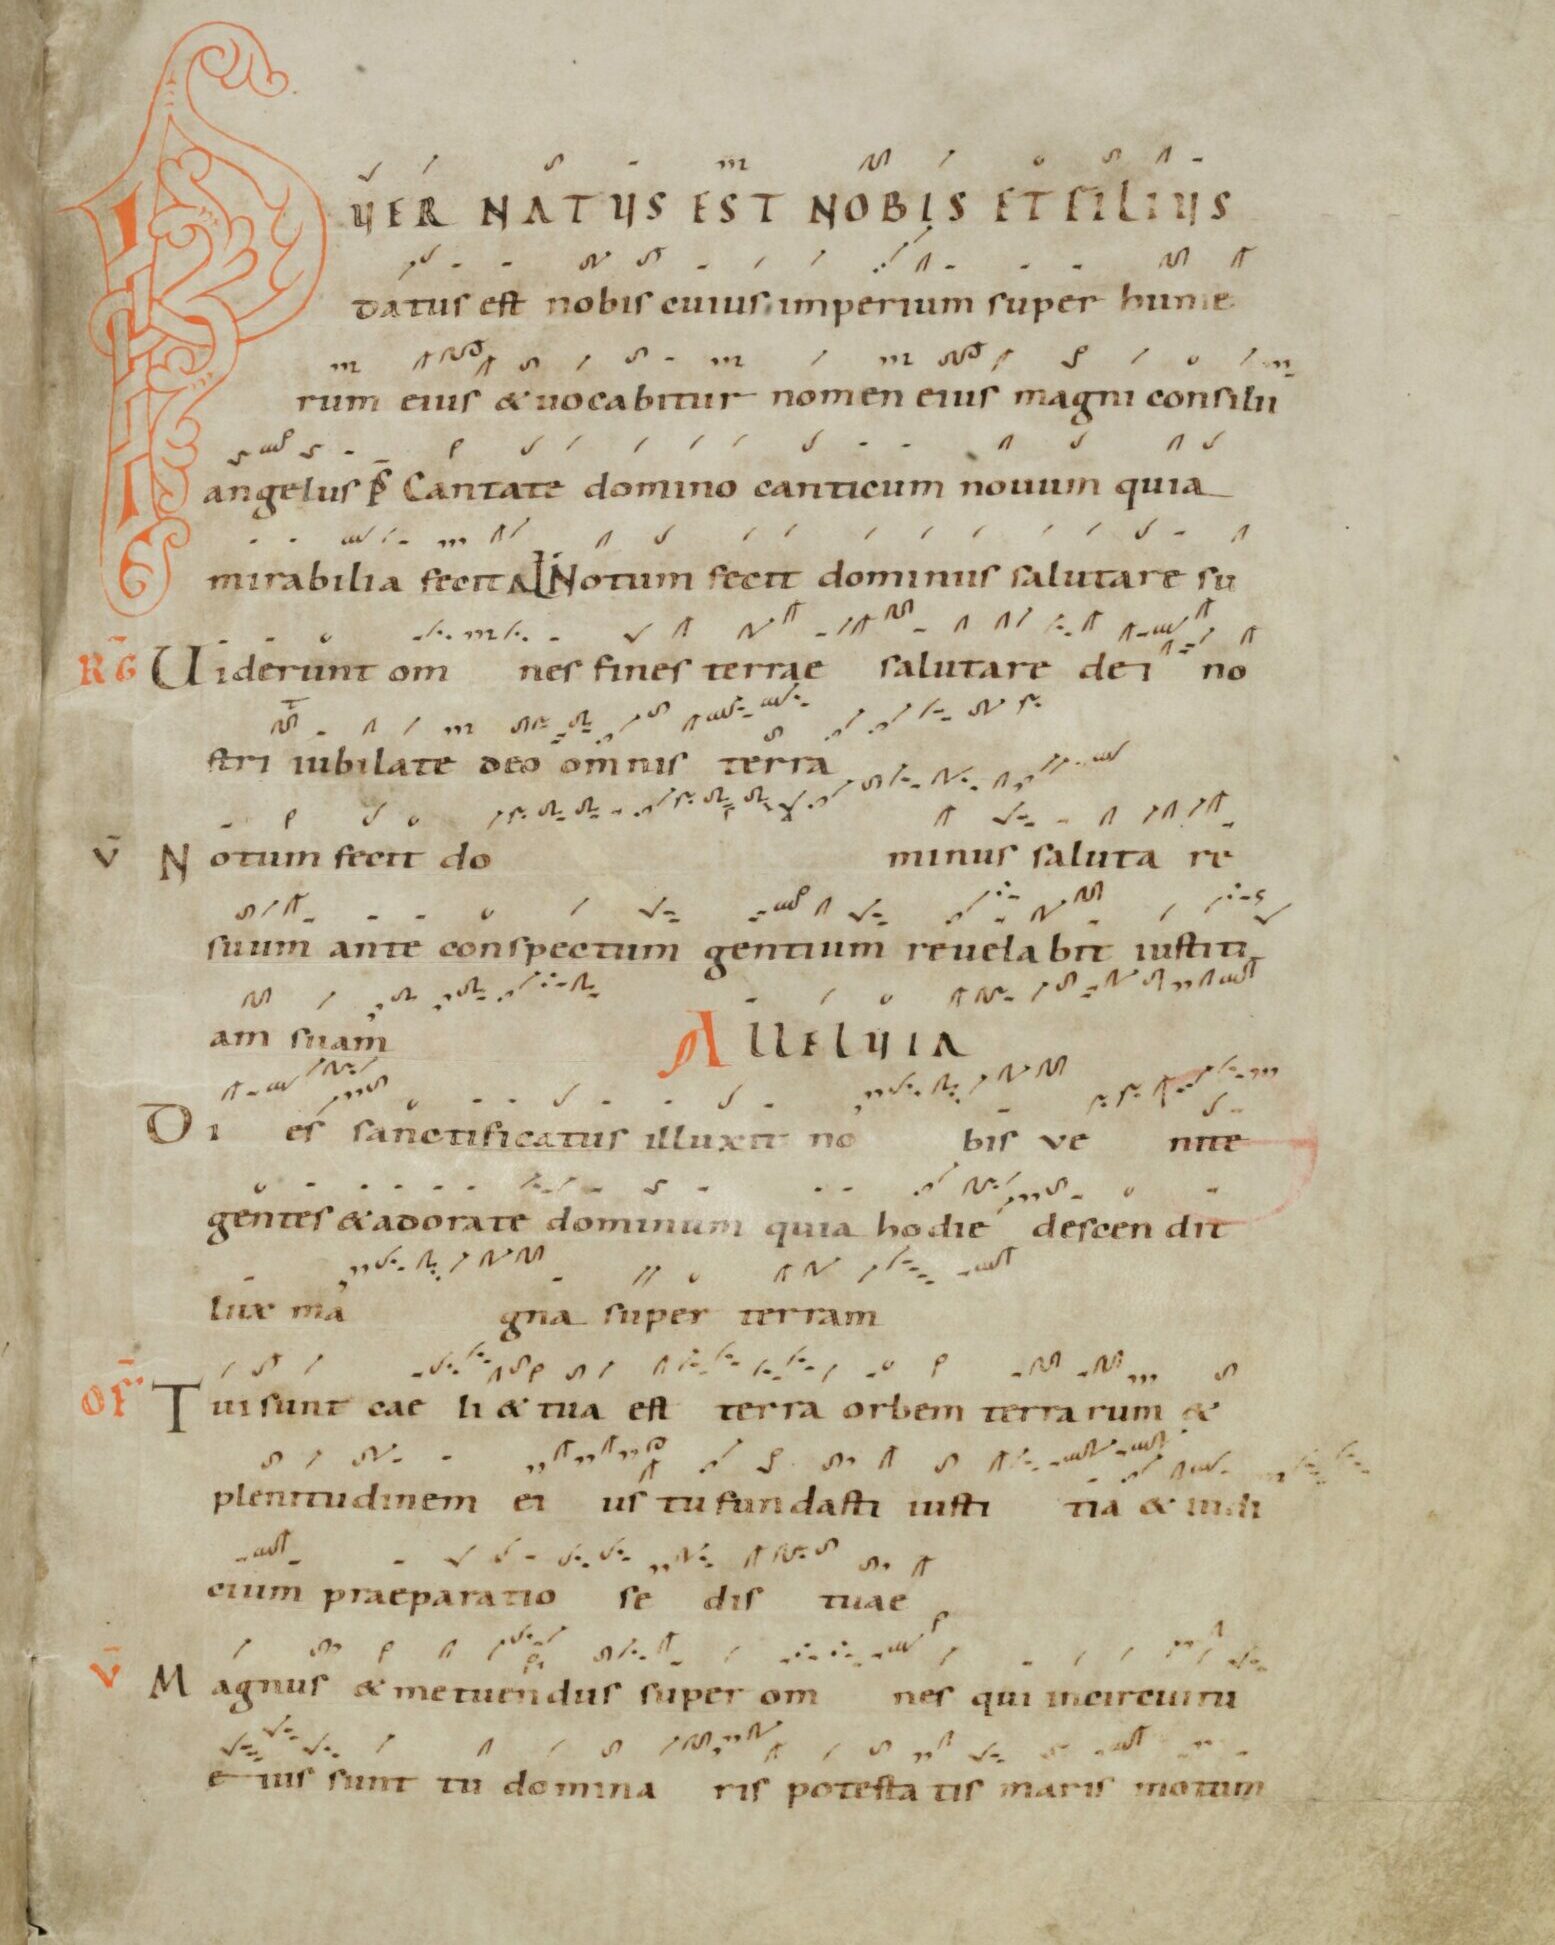 PUER NATUS EST NOBIS ET FILIUS
datus est nobis cuius imperium super hume
rum eius & uocabitur nomen eius magni consilii
angelus p̄s Cantate domino canticum nouum quia
mirabilia fecit AL Notum fecit dominus salutare su
RG Uiderunt om nes fines terrae salutare dei no
stri iubilate deo omnis terra
V̄ Notum fecit do minus saluta re
suum ante conspectum gentium reuelabit iustiti
am suam Alleluia
Di es sanctificatus illuxit no bis ve nite
gentes & adorate dominum quia hodie descen dit
lux ma gna super terram
OF Tui sunt cae li & tua est terra orbem terrarum &
plenitudinem ei us tu fundasti iusti tia & iudi
cium praeparatio se dis tuae
V̄ Magnus & metuendus super om nes qui incircuitu
e ius sunt tu domina ris potesta tis maris motum